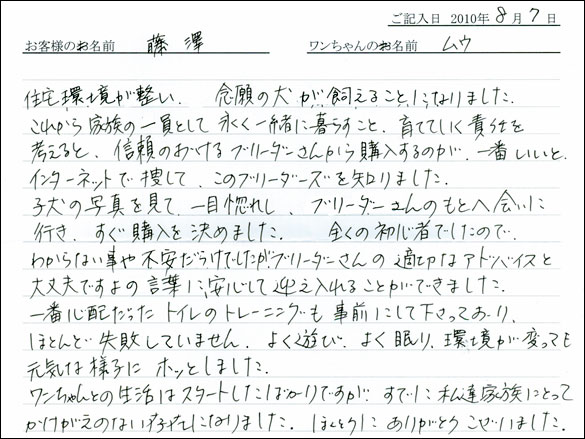 ご記入日 2010年 8月 7日
お客様のお名前 藤澤 ワンちゃんのお名前 ムウ
住宅環境が整い、 念願の犬が飼えることになりました。
これから家族の一員として永く一緒に暮らすこと、育てていく責任を
考えると、信頼のおけるブリーダーさんから購入するのが、一番いいと、
インターネットで捜して、このブリーダーズを知りました。
子犬の写真を見て、一目惚れし、ブリーダーさんのもとへ会いに
行き、すぐ購入を決めました。 全くの初心者でしたので、
わからない事や不安だらけでしたがブリーダーさんの適切なアドバイスと
大丈夫ですよの言葉に安心して迎え入れることができました。
一番心配だった トイレのトレーニングも事前にして下さっており、
ほとんど失敗していません。よく遊び、よく眠り、環境が変っても
元気な様子に ホッとしました。
ワンちゃんとの生活はスタートしたばかりですが、すでに私達家族にとって
かけがえのない存在になりました。ほんとうに ありがとうございました。